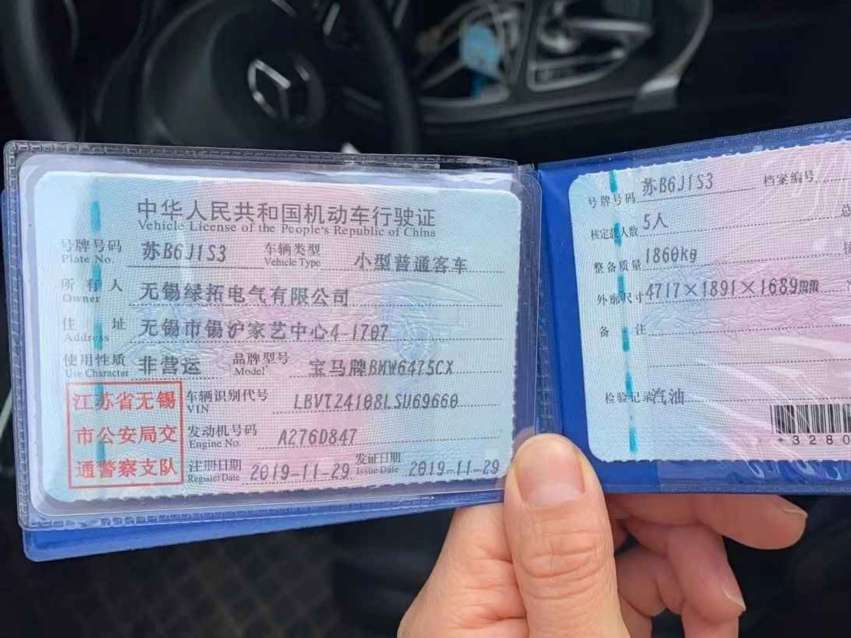 中华人民共和国机动车行驶证
Vehicle License of the People's Republic of China
号牌号码 苏B6J1S3 车辆类型 小型普通客车
Plate No. Vehicle Type
所有人 无锡绿拓电气有限公司
Owner
住址 无锡市锡沪家艺中心4-1707
Address
使用性质 非营运 品牌型号 宝马牌BMW6475CX
Use Character Model
江苏省无锡
市公安局交
通警察支队
车辆识别代号 LBVTZ4108LSU69660
VIN
发动机号码 A276D847
Engine No.
注册日期 2019-11-29 发证日期 2019-11-29
Register Date Issue Date
号牌号码 苏B6J1S3 档案编号
核定载人数 5人
整备质量 1860kg
外廓尺寸 4717×1891×1689mm
备注
检验记录 汽油